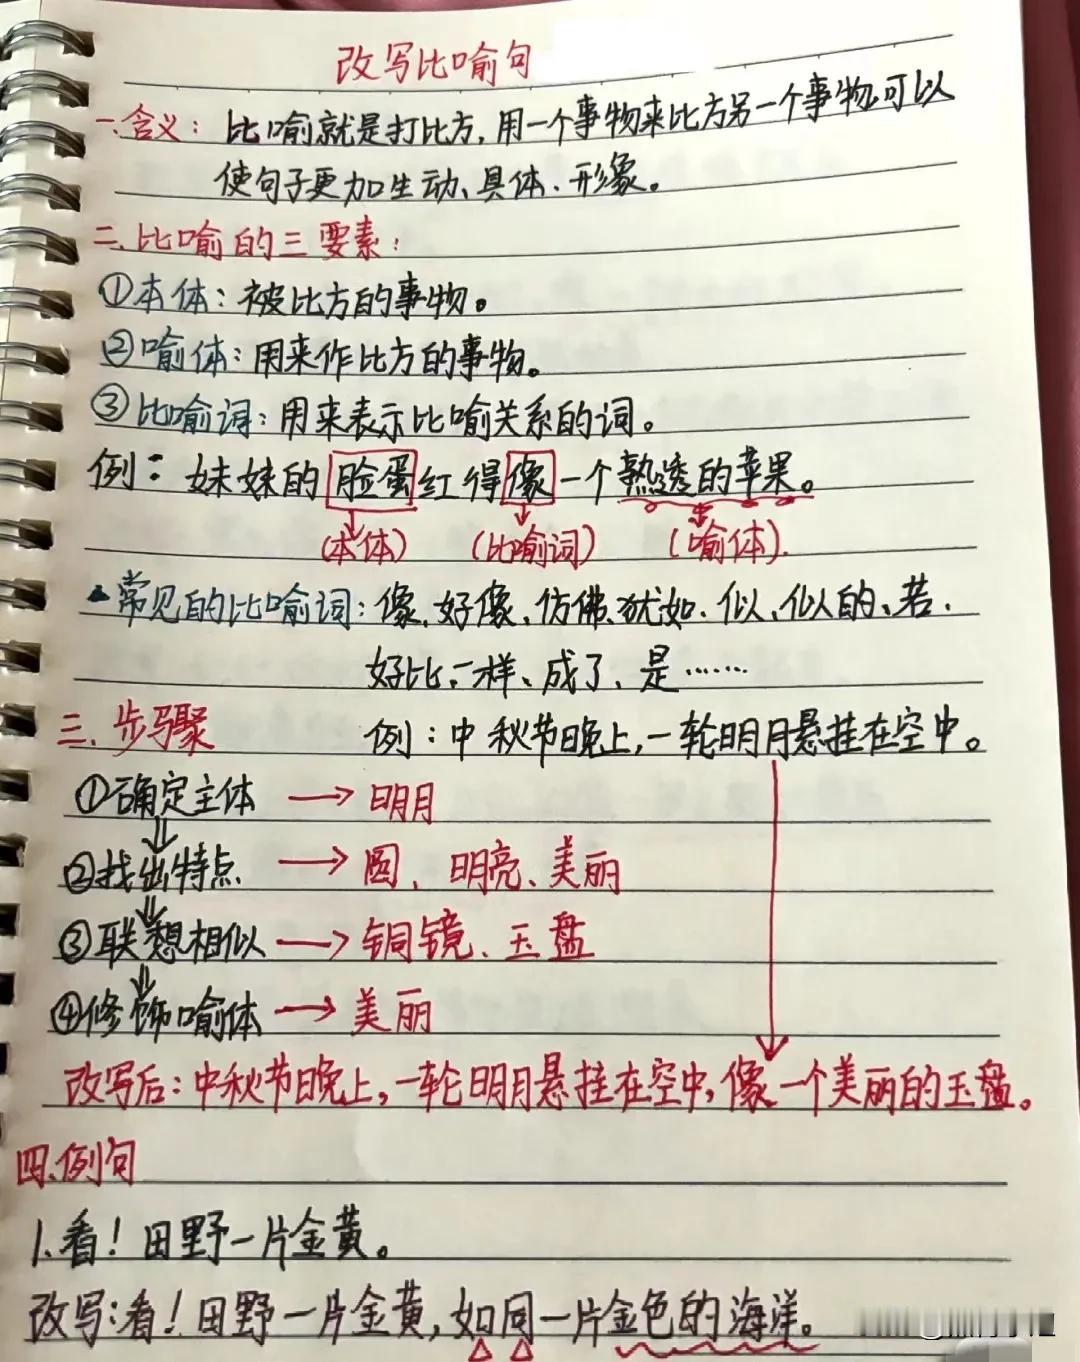 改写比喻句
一.含义：比喻就是打比方,用一个事物来比方另一个事物,可以
使句子更加生动、具体、形象。
二.比喻的三要素：
①本体：被比方的事物。
②喻体：用来作比方的事物。
③比喻词：用来表示比喻关系的词。
例：妹妹的脸蛋红得像一个熟透的苹果。
(本体) (比喻词) (喻体).
常见的比喻词：像、好像、仿佛、犹如、似、似的、若、
好比、一样、成了、是……
三、步骤 例：中秋节晚上,一轮明月悬挂在空中。
①确定主体 → 明月
②找出特点 → 圆、明亮、美丽
③联想相似 → 铜镜、玉盘
④修饰喻体 → 美丽
改写后：中秋节晚上,一轮明月悬挂在空中,像一个美丽的玉盘。
四.例句
1.看！田野一片金黄。
改写：看！田野一片金黄,如同一片金色的海洋。